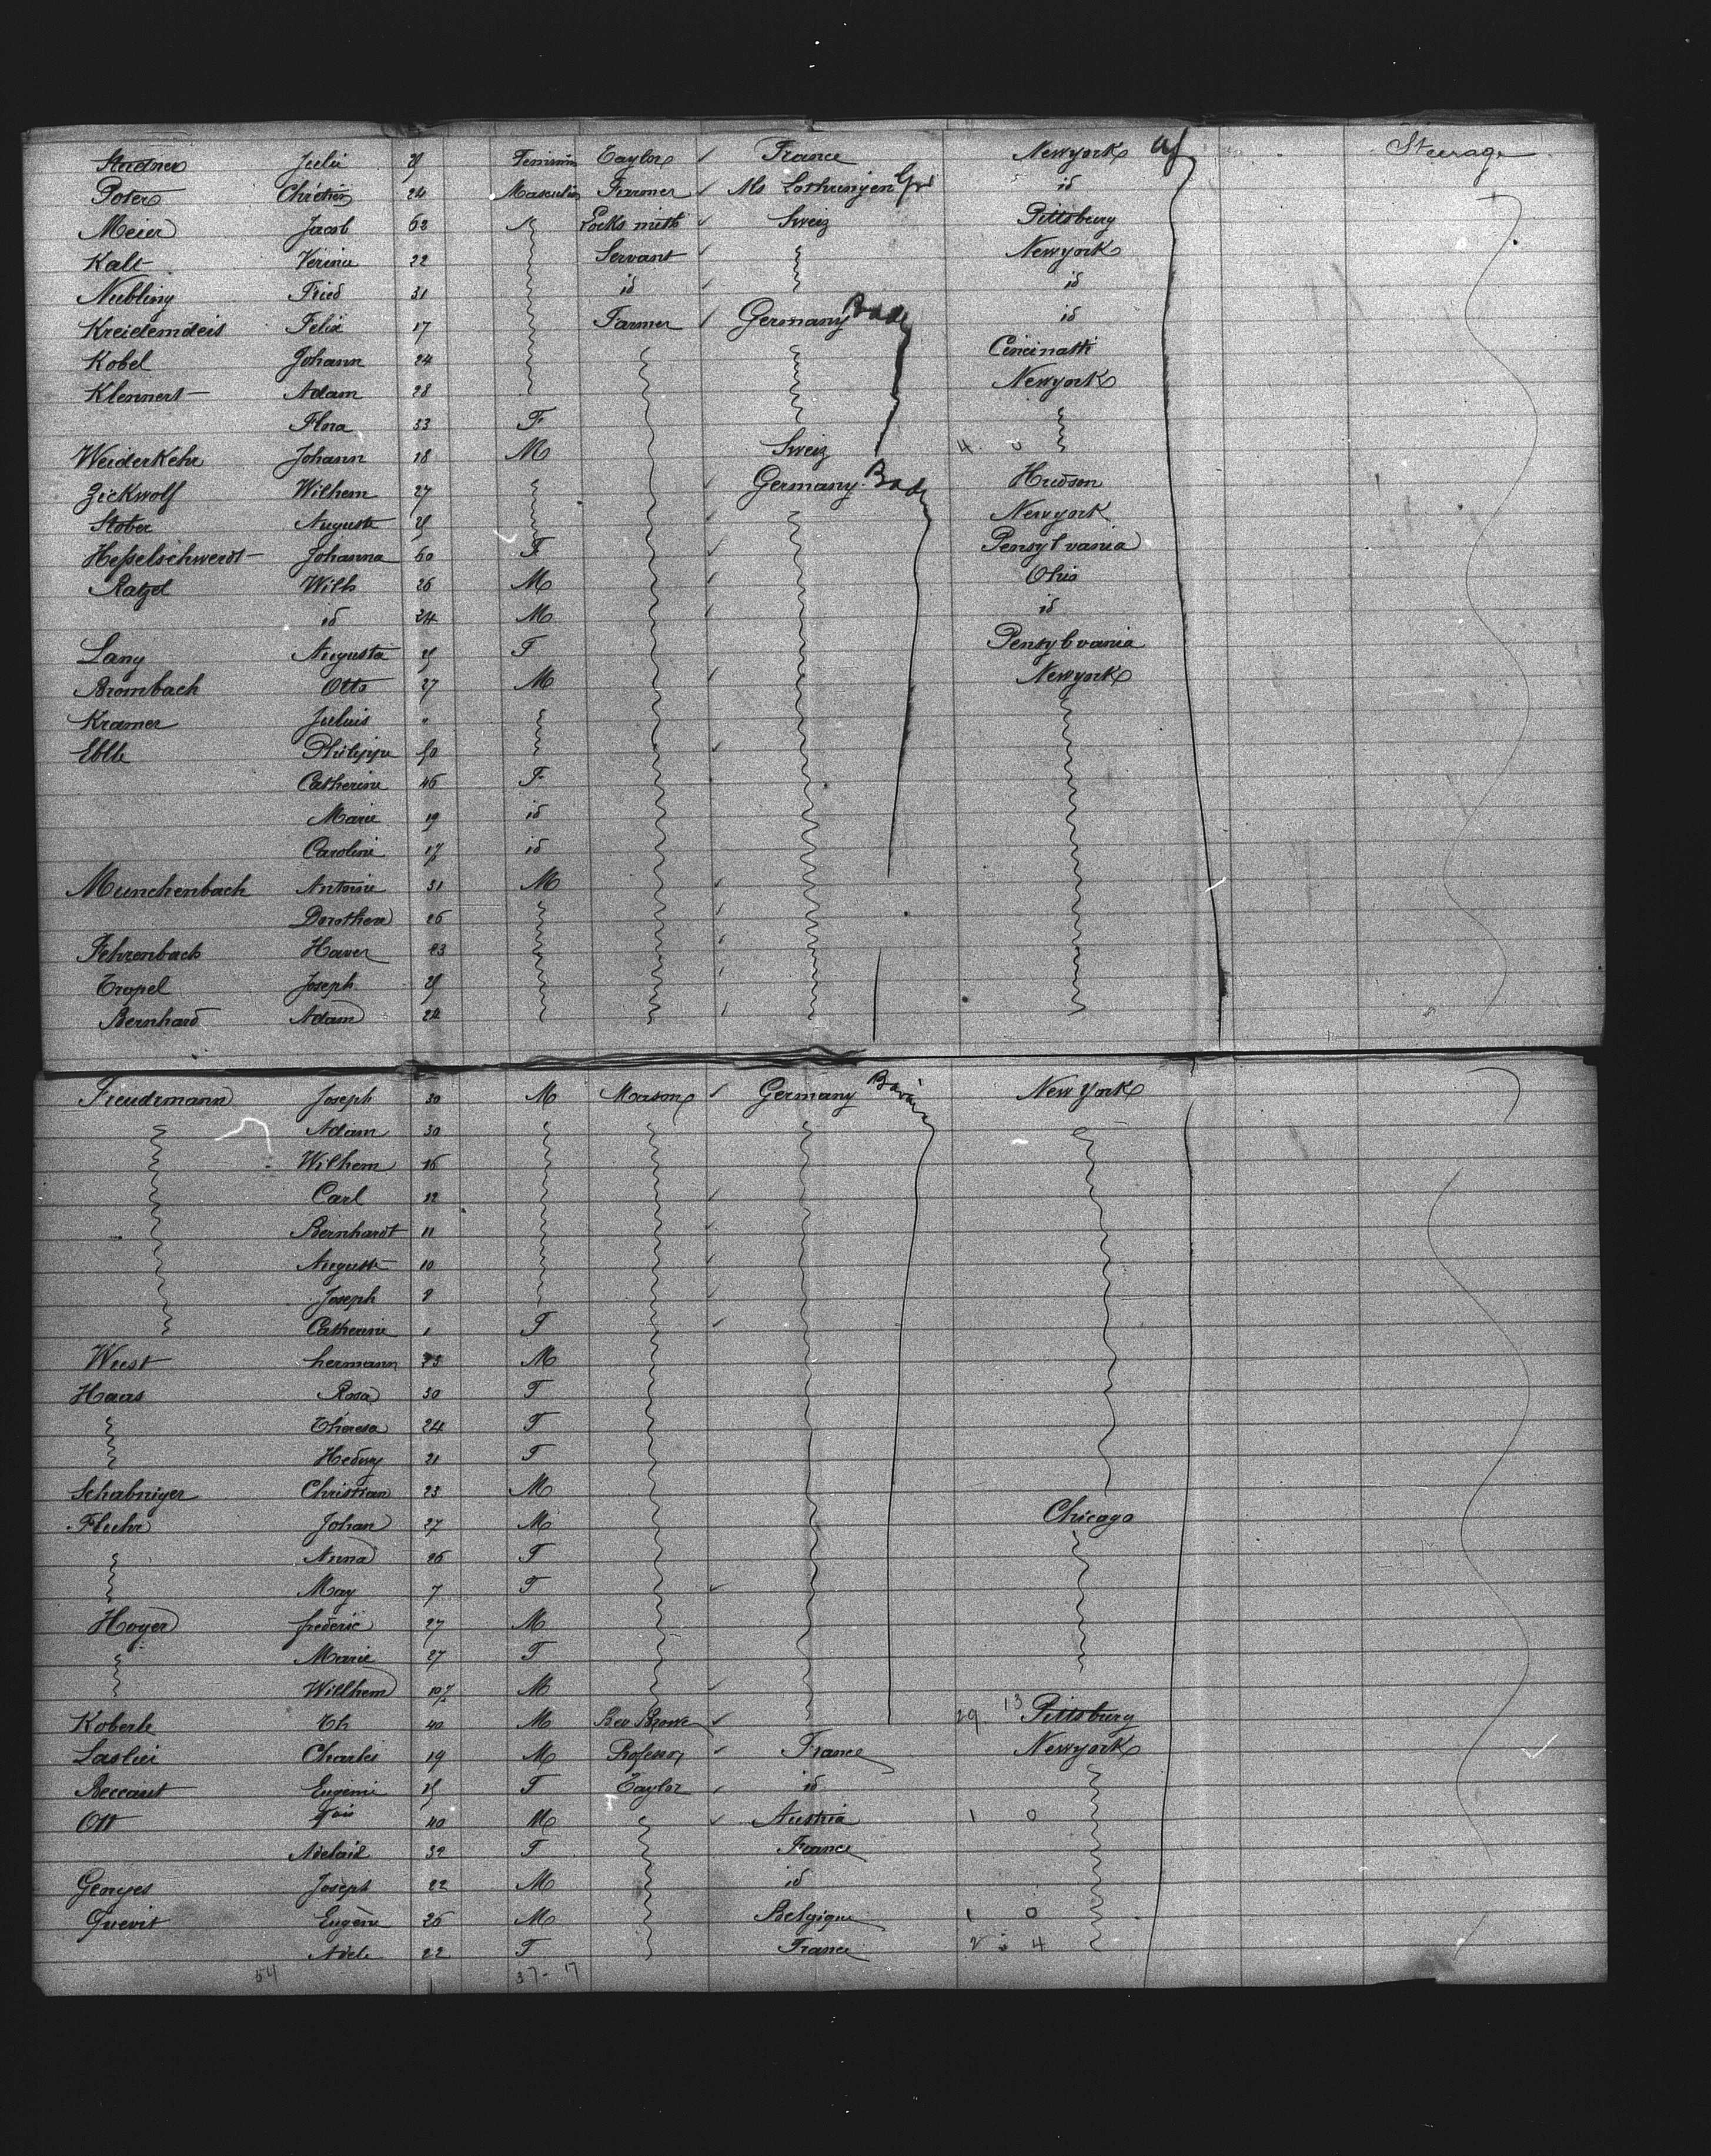 Julie Feminin Taylor France Newyork Steerage
Poter Chrétien 24 Masculin Farmer Als Lothringen id
Meier Jacob 62 Locksmith Sweiz Pittsburg
Kalt Verine 22 Servant Newyork
Nubling Fried 31 id id
Kreidemdeis Felix 17 Farmer Germany id
Kobel Johann 24 Cincinatti
Klennert Adam 28 Newyork
Flora 33 F
Weiderkehr Johann 18 M Sweiz 4 0
Zickwolf Wilhem 27 Germany Hudson
Stober Auguste Newyork
Heßelschwerdt Johanna 60 F Pensylvania
Ratzel Wilh 26 M Ohio
id 24 M id
Lang Augusta F Pensylvania
Brombach Otto 27 M Newyork
Kramer Juluis "
Eble Philippe 50
Catherine 46 F
Marie 19 id
Caroline 17 id
Munchenbach Antoine 31 M
Dorothea 26
Fehrenbach Haver
Tropel Joseph
Bernhard Adam 24
Freudemann Joseph 30 M Mason Germany New York
Adam 30
Wilhem 16
Carl 12
Bernhardt 11
Auguste 10
Joseph 8
Catherine 1 F
Wust hermann M
Haas Rosa 30 F
Théresa 24 F
Hedwy 21 F
Schabniger Christian 23 M
Fluhr Johan 27 M Chicago
Anna 26 F
May 7 F
Hoyer frederic 27 M
Marie 27 F
Willhem M
Koberle Th 40 M 29 13 Pittsburg
Charles 19 M Professor France Newyork
Beccaut Eugenie F Taylor id
Ott 40 M Austria 1 0
Adelaid 32 F France
Georges Joseph 22 M id
Quevit Eugène 26 M Belgique 1 0
Adele 22 F France 2 4
54 37-17